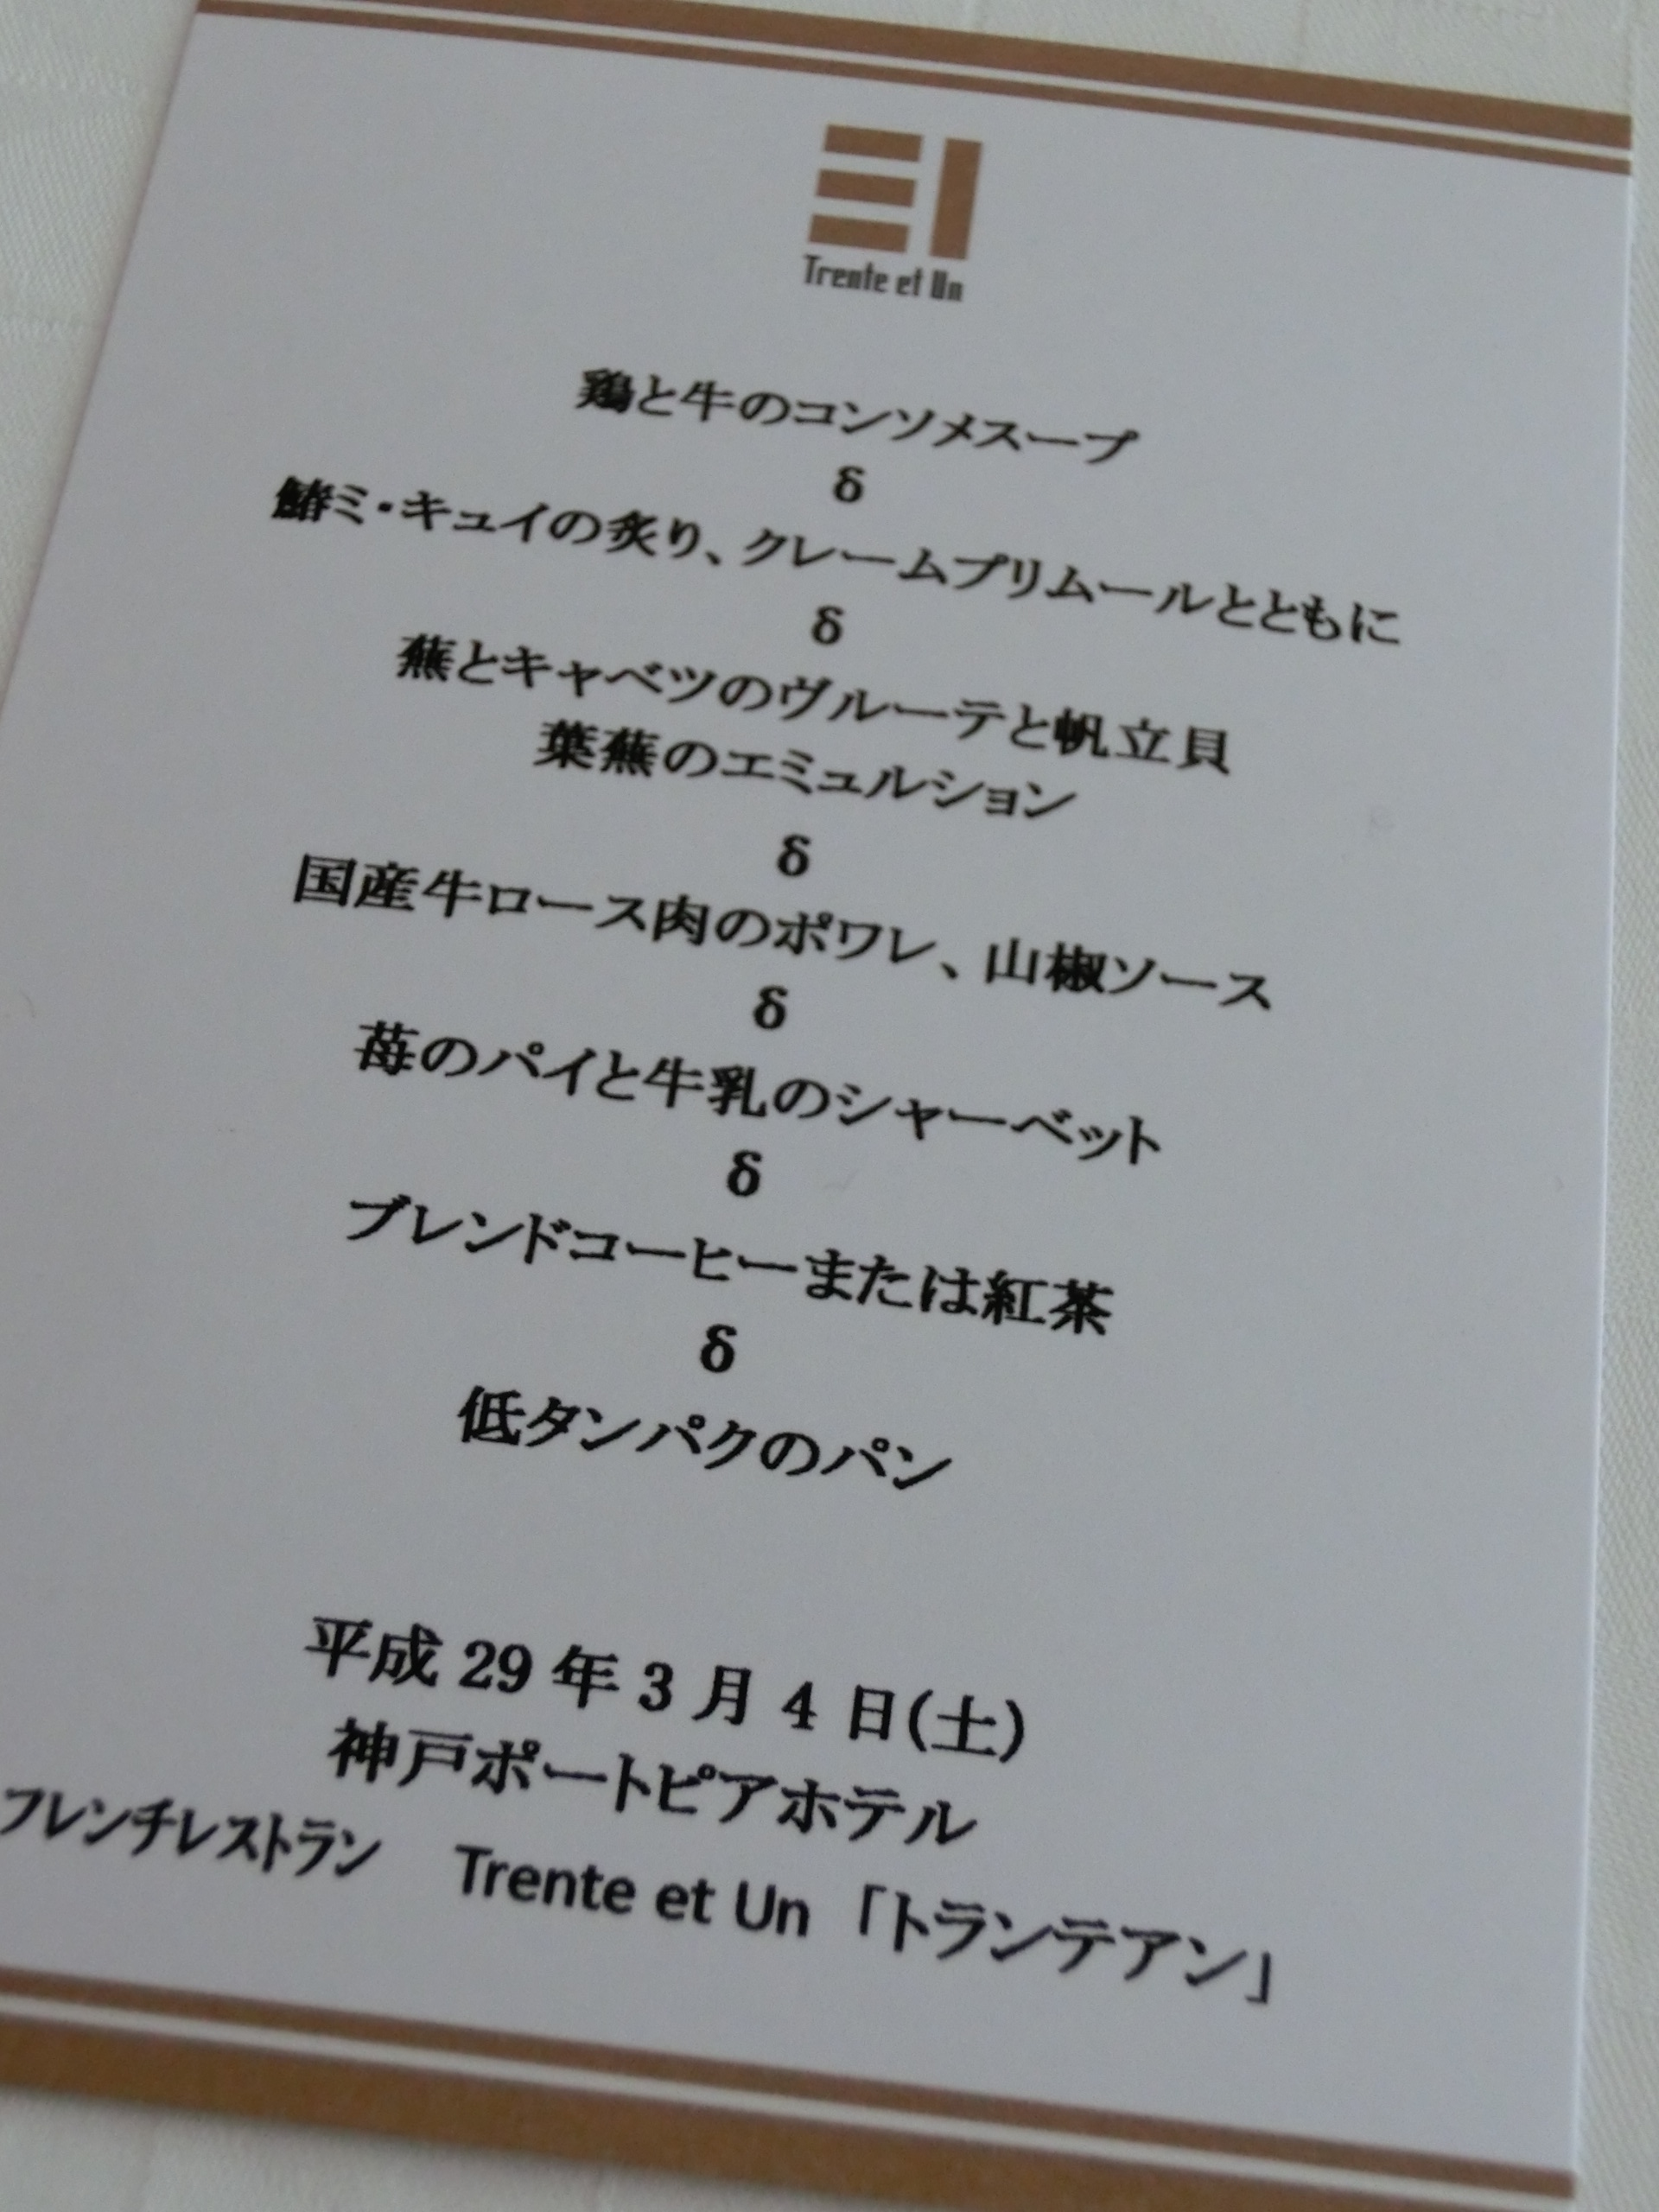 Trente et Un
鶏と牛のコンソメスープ
δ
鰆ミ・キュイの炙り、クレームプリムールとともに
δ
蕪とキャベツのヴルーテと帆立貝
葉蕪のエミュルション
δ
国産牛ロース肉のポワレ、山椒ソース
δ
苺のパイと牛乳のシャーベット
δ
ブレンドコーヒーまたは紅茶
δ
低タンパクのパン
平成 29 年 3 月 4 日(土)
神戸ポートピアホテル
フレンチレストラン　Trente et Un「トランテアン」